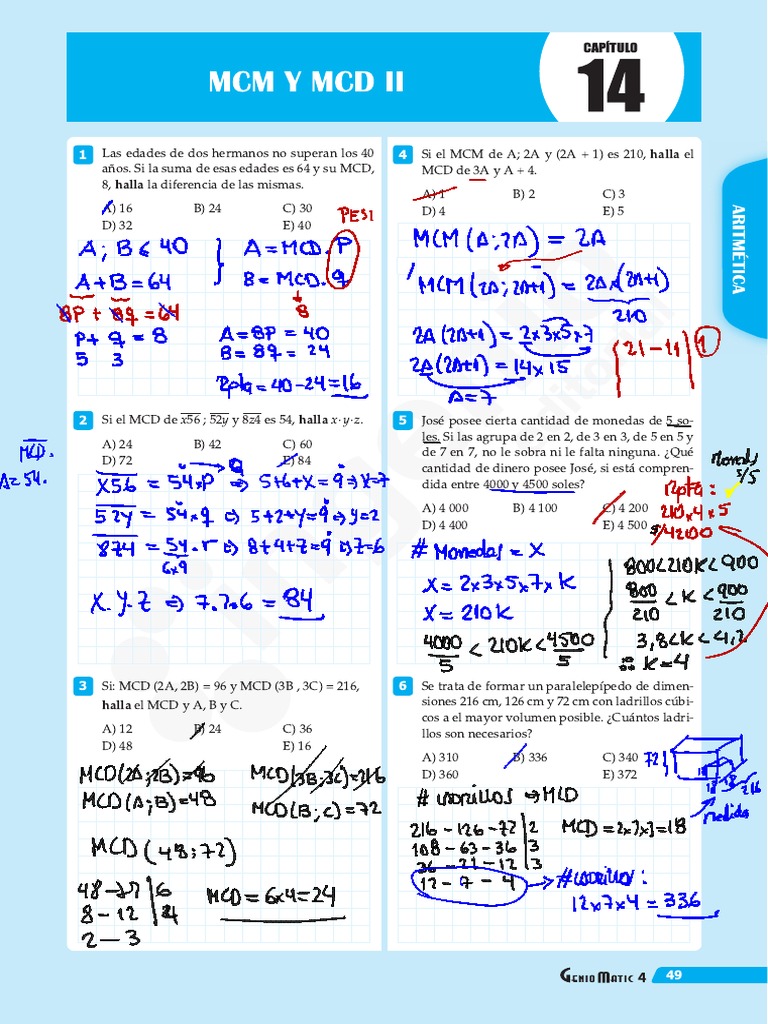 MCM Y MCD II
CAPÍTULO
14
ARITMÉTICA
1 Las edades de dos hermanos no superan los 40
años. Si la suma de esas edades es 64 y su MCD,
8, halla la diferencia de las mismas.
A) 16 B) 24 C) 30
D) 32 E) 40
PESI
A; B < 40
A = MCD. P
A + B = 64
B = MCD. q
8
8P + 8q = 64
P + q = 8
5 3
A = 8P = 40
B = 8q = 24
Rpta = 40 - 24 = 16
2 Si el MCD de x56 ; 52y y 8z4 es 54, halla x·y·z.
A) 24 B) 42 C) 60
D) 72 E) 84
MCD.
A=54.
9
X56 = 54.P ⇒ 5+6+X = 9 ⇒ X=7
52y = 54.q ⇒ 5+2+y = 9 ⇒ y=2
8z4 = 54.r ⇒ 8+4+z = 9 ⇒ z=6
6x9
X.Y.Z ⇒ 7.2.6 = 84
3 Si: MCD (2A, 2B) = 96 y MCD (3B , 3C) = 216,
halla el MCD y A, B y C.
A) 12 B) 24 C) 36
D) 48 E) 16
MCD(2A;2B) = 96
MCD(3B;3C) = 216
MCD(A;B) = 48
MCD(B;C) = 72
MCD (48;72)
48 - 72 | 6
8 - 12 | 4
2 - 3
MCD = 6x4 = 24
4 Si el MCM de A; 2A y (2A + 1) es 210, halla el
MCD de 3A y A + 4.
A) 1 B) 2 C) 3
D) 4 E) 5
MCM (A;2A) = 2A
MCM (2A;2A+1) = 2A x (2A+1)
210
2A(2A+1) = 2x3x5x7
2A(2A+1) = 14x15
A = 7
21 - 11 | 1
5 José posee cierta cantidad de monedas de 5 so-
les. Si las agrupa de 2 en 2, de 3 en 3, de 5 en 5 y
de 7 en 7, no le sobra ni le falta ninguna. ¿Qué
cantidad de dinero posee José, si está compren-
dida entre 4000 y 4500 soles?
A) 4 000 B) 4 100 C) 4 200
D) 4 400 E) 4 500
Monedas
S/5
Rpta :
210x4x5
S/4200
# Monedas = X
X = 2x3x5x7xK
X = 210K
4000/5 < 210K < 4500/5
800<210K<900
800/210 < K < 900/210
3,8<K<4,2
∴ K=4
6 Se trata de formar un paralelepípedo de dimen-
siones 216 cm, 126 cm y 72 cm con ladrillos cúbi-
cos a el mayor volumen posible. ¿Cuántos ladri-
llos son necesarios?
A) 310 B) 336 C) 340
D) 360 E) 372
72
18 18
216
Medida
# Ladrillos ⇒ MCD
216 - 126 - 72 | 2
108 - 63 - 36 | 3
36 - 21 - 12 | 3
12 - 7 - 4
MCD = 2x3x3 = 18
# Ladrillos :
12x7x4 = 336
GENIO MATIC 4 49